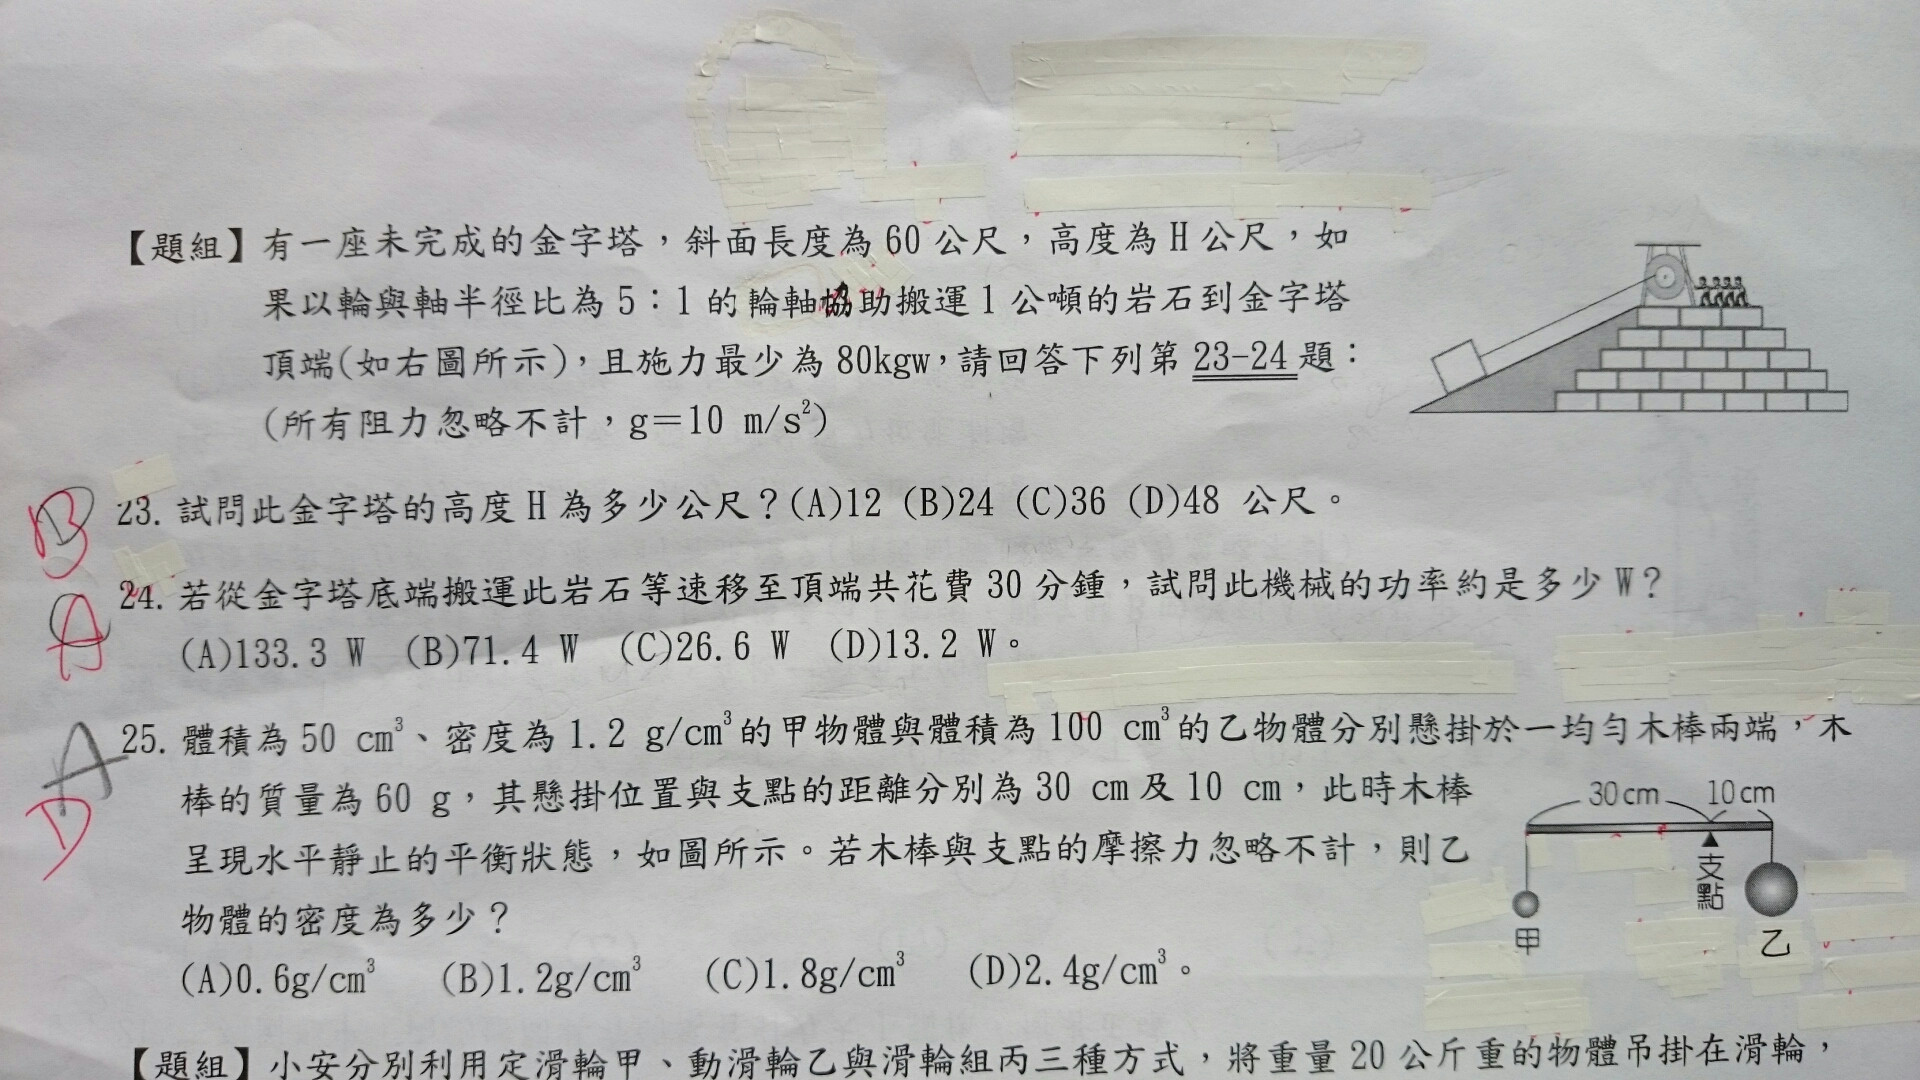 【題組】有一座未完成的金字塔，斜面長度為 60 公尺，高度為 H 公尺，如
果以輪與軸半徑比為 5：1 的輪軸協助搬運 1 公噸的岩石到金字塔
頂端(如右圖所示)，且施力最少為 80kgw，請回答下列第 23-24 題：
(所有阻力忽略不計，g＝10 m/s²)
B
23. 試問此金字塔的高度 H 為多少公尺？(A)12 (B)24 (C)36 (D)48 公尺。
A
24. 若從金字塔底端搬運此岩石等速移至頂端共花費 30 分鍾，試問此機械的功率約是多少 W？
(A)133.3 W (B)71.4 W (C)26.6 W (D)13.2 W。
A
25. 體積為 50 cm³、密度為 1.2 g/cm³的甲物體與體積為 100 cm³的乙物體分別懸掛於一均勻木棒兩端，木
D
棒的質量為 60 g，其懸掛位置與支點的距離分別為 30 cm 及 10 cm，此時木棒
呈現水平靜止的平衡狀態，如圖所示。若木棒與支點的摩擦力忽略不計，則乙
物體的密度為多少？
(A)0.6g/cm³ (B)1.2g/cm³ (C)1.8g/cm³ (D)2.4g/cm³。
30cm 10cm
支點
甲
乙
【題組】小安分別利用定滑輪甲、動滑輪乙與滑輪組丙三種方式，將重量 20 公斤重的物體吊掛在滑輪，